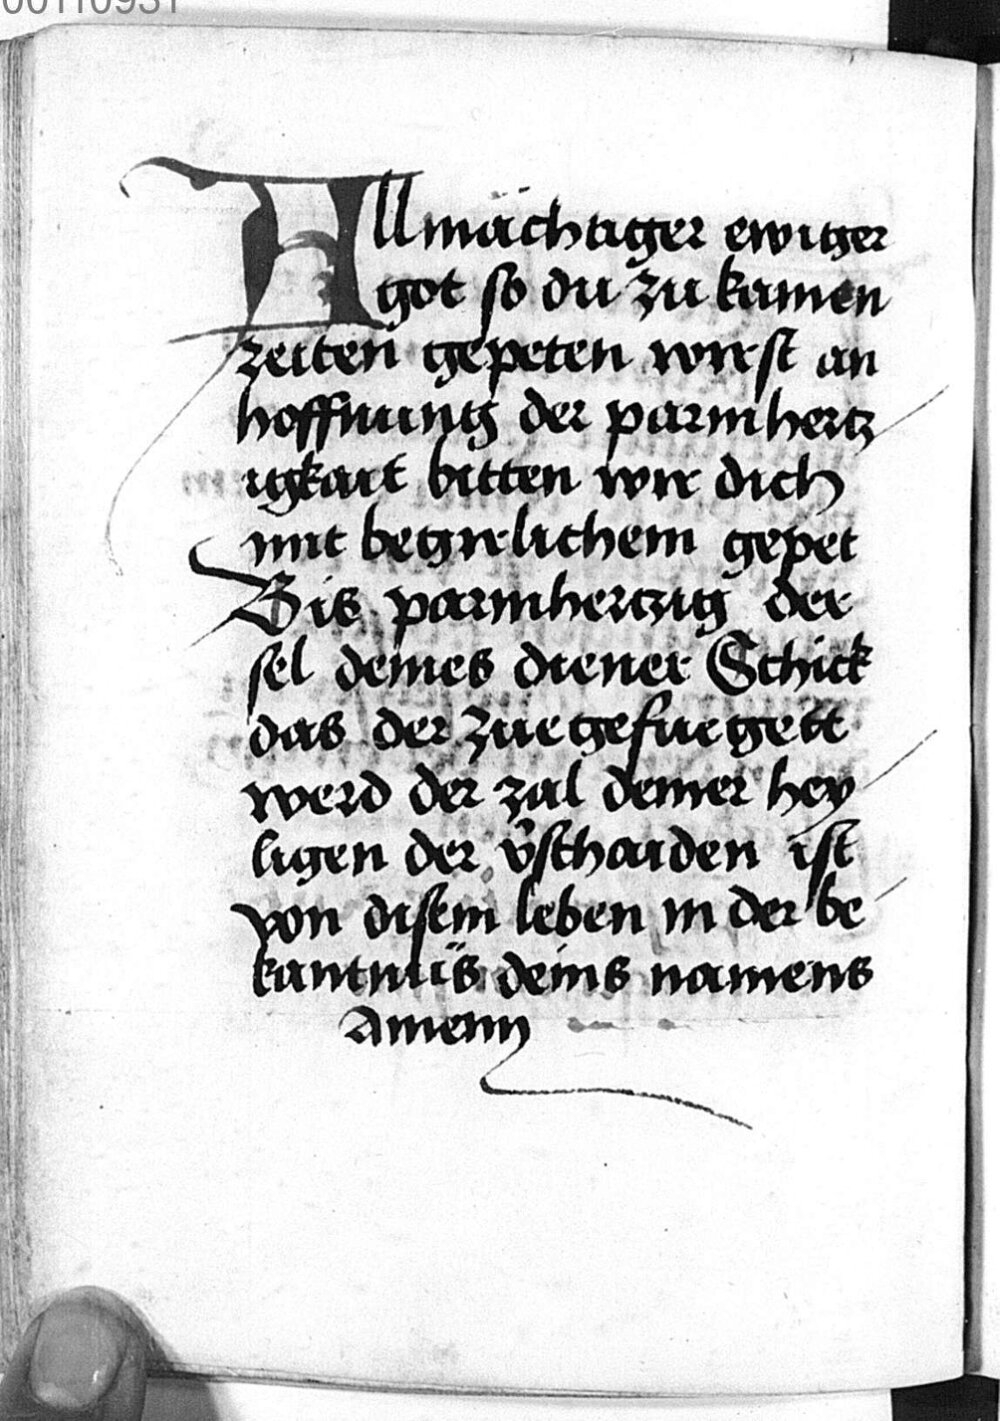 00110931
Allmächtiger ewiger
got so du zu kainen
zeiten gepeten wirst an
hoffnung der parmhertz
igkait bitten wir dich
mit begirlichem gepet
Bis parmhertzig der
sel deines diener Schick
das der zuegefuegett
werd der zal deiner hey
ligen der v̈schaiden ist
von disem leben in der be
kantnüs deins namens
Amenn